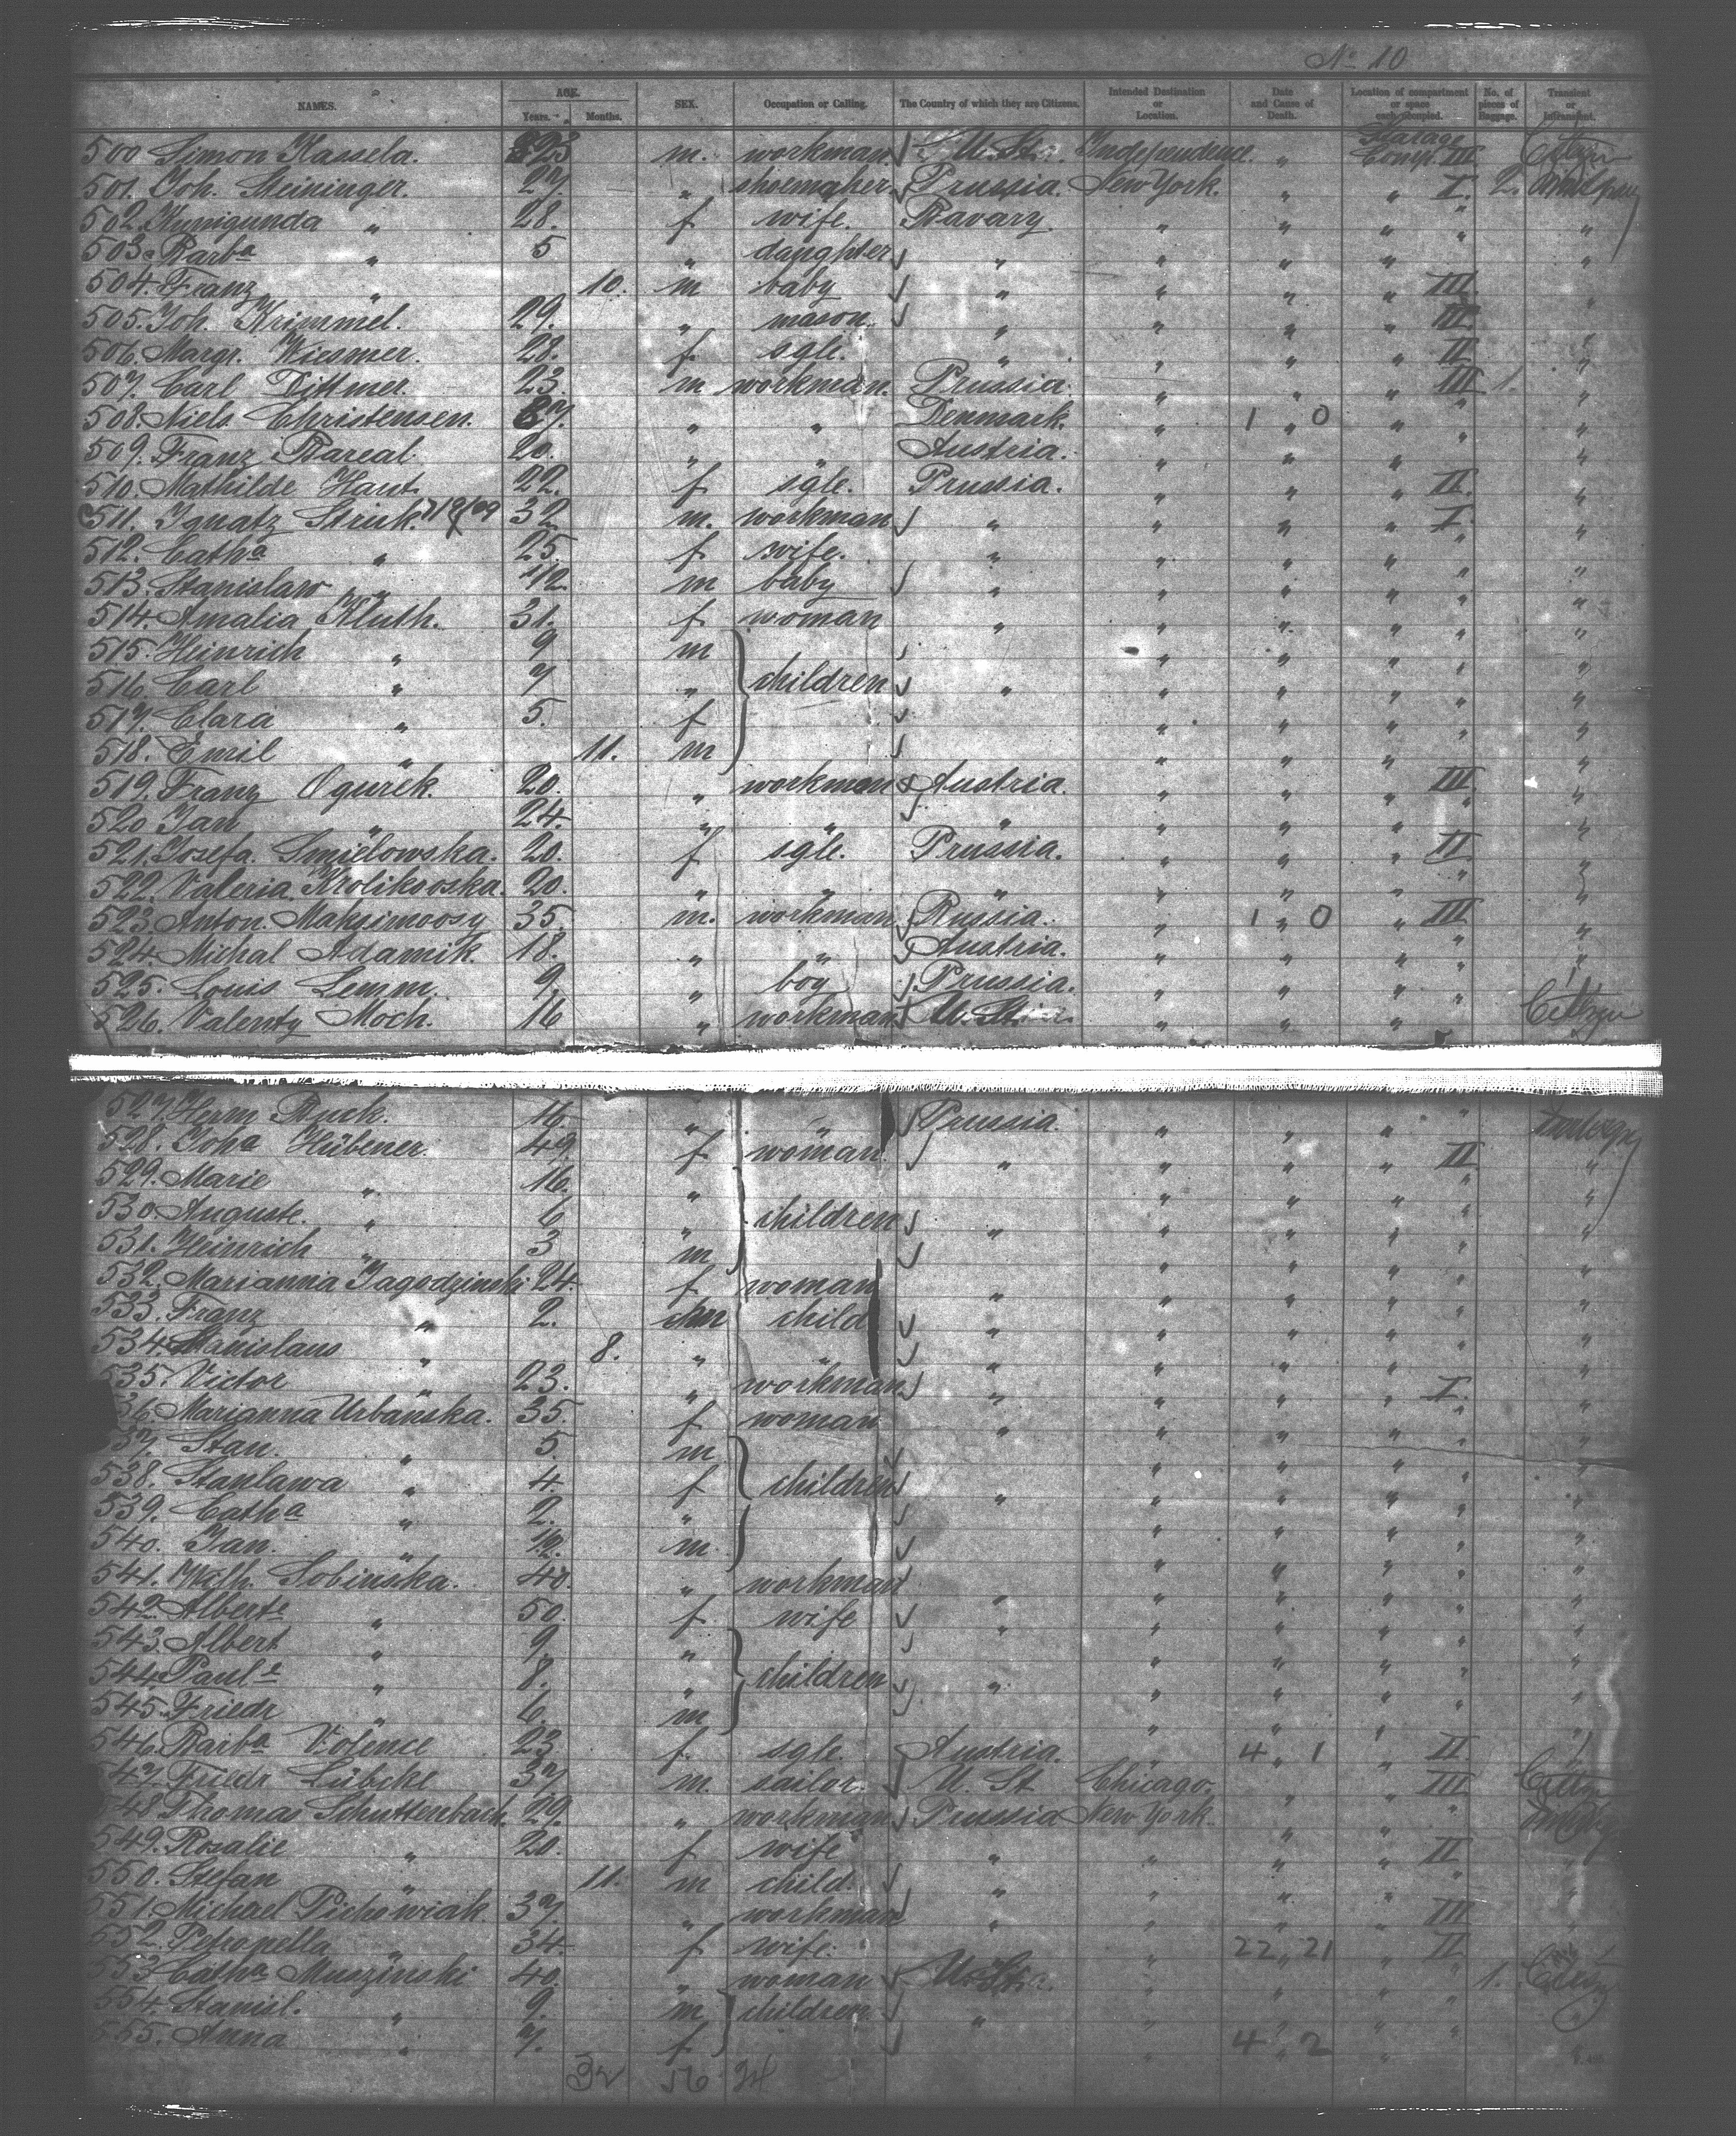 No 10
NAMES. AGE. Years. Months. SEX. Occupation or Calling. The Country of which they are Citizens. Intended Destination or Location. Date and Cause of Death. Location of compartment or space each occupied. No. of pieces of Baggage. Transient or Intransient.
500 Simon Kassela. 23 m. workman U. St. Independence. " Starage Comp. III Citizen
501. Joh. Meininger. 27. " shoemaker. Prussia. New York. " " I. 2.
502. Kunigunda " 28. f. wife. Bavary. " " " " "
503. Barba " 5 " daughter " " " " " "
504. Franz " 10. m baby " " " " III. "
505. Joh. Krimmel. 29. " mason. " " " " III. "
506. Margr. Wiesmer. 28. f. sgle. " " " " II. "
507. Carl Dittmer. 23. m workman. Prussia. " " " III 1. "
508. Niels Christensen. 27. " " Denmark. " 1 " 0 " " "
509. Franz Bareal. 20. " " Austria. " " " " "
510. Mathilde Haut. 22. f sgle. Prussia. " " " II. "
511. Ignatz Struk. 32. m. workman " " " " I. "
512. Catha " 25. f wife. " " " " " "
513. Stanislaw " 1/12 m baby " " " " " "
514. Amalia Kluth. 31. f woman " " " " " "
515. Heinrich " 9 m " " " " "
516. Carl " 7 " children " " " " " "
517. Clara " 5. f " " " " "
518. Emil " 11. m " " " " "
519. Franz Ogurek. 20. " workman Austria. " " " III. "
520 Jan " 24. " " " " " " " "
521. Josefa. Smielowska. 20. f sgle. Prussia. " " " II "
522. Valeria Krolikooska. 20. " " " " " " " "
523. Anton. Maksimoosy 35. m. workman Russia. " 1 " 0 " III "
524. Michal Adamik. 18. " " Austria. " " " " "
525. Louis Lemm. 9. " boy Prussia. " " " " "
526. Valenty Moch. 16 " workman U. St. " " " " Citizen
527. Herm Buck. 16. " " Prussia. " " " "
528. Joha Hübener. 49. f woman. " " " " II "
529. Marie " 16. " " " " " "
530. Auguste. " 6 " children " " " " " "
531. Heinrich " 3 m " " " " "
532. Mariannia Jagodzinski 24. f woman " " " " " "
533. Franz " 2. m child " " " " " "
534. Stanislaus " 8. " " " " " " " "
535. Victor " 23. " workman. " " " " I. "
536. Marianna Urbanska. 35. f woman " " " " " "
537. Stan. " 5 m " " " " "
538. Stanlawa " 4. f children " " " " " "
539. Catha " 2. " " " " " "
540. Jan. " m. " " " " "
541. Wilh. Sobinska. 40. " workman " " " " " "
542. Alberte " 50. f wife " " " " " "
543. Albert " 9. " " " " " "
544. Paule " 8. " children " " " " " "
545. Friedr " 6. m " " " " "
546. Barba Volence 23. f. sgle. Austria. " 4 " 1 " II "
547. Friedr Lübcke 37 m. sailor. U. St Chicago. " " III Citizen
548 Thomas Schuttenbach. 29. " workman Prussia New York. " " "
549. Rosalie " 20. f wife " " " " II "
550. Stefan " 11. m child. " " " " " "
551. Michael Pichowiak. 37. " workman " " " " III "
552. Petronella " 34. f wife. " " 22 " 21 " II "
553 Catha Muszinski 40. " woman U. St. " " " " 1. Citizen
554. Stanisl. " 9. m children " " " " " "
555. Anna " 7. f " 4 " 2 " "
32 56 24